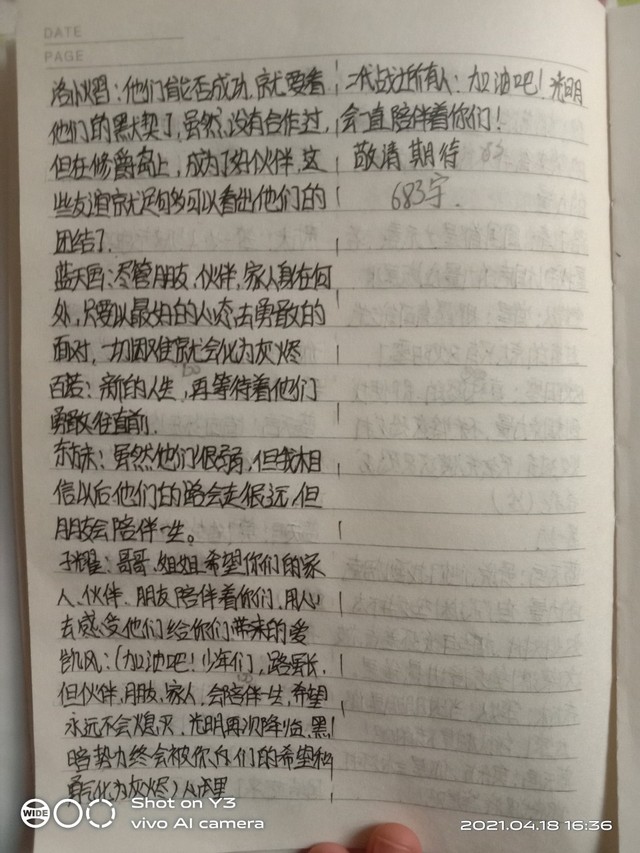 DATE
PAGE
洛小熠：他们能否成功，就要看
他们的默契了，虽然，没有合作过，
但在修爵岛上，成为了好伙伴，这
些友谊就足够可以看出他们的
团结了．
蓝天画：尽管朋友、伙伴，家人身在何
处，只要以最好的心态，去勇敢的
面对，一切困难就会化为灰烬
百诺：新的人生，再等待着他们
勇敢往直前．
东方末：虽然他们很弱，但我相
信以后他们的路会走很远，但
朋友会陪伴一生。
子耀：哥哥、姐姐希望你们的家
人、伙伴、朋友陪伴着你们，用心
去感受他们给你们带来的爱
凯风：（加油吧！少年们，路虽长，
但伙伴、朋友、家人，会陪伴一生，希望
永远不会熄灭，光明再次降临，黑
暗势力终会被你们的希望和
勇气化为灰烬）心里
二代战士所有人：加油吧！光明
会一直陪伴着你们！
敬请期待
683字．
WIDE
Shot on Y3
vivo AI camera
2021.04.18 16:36